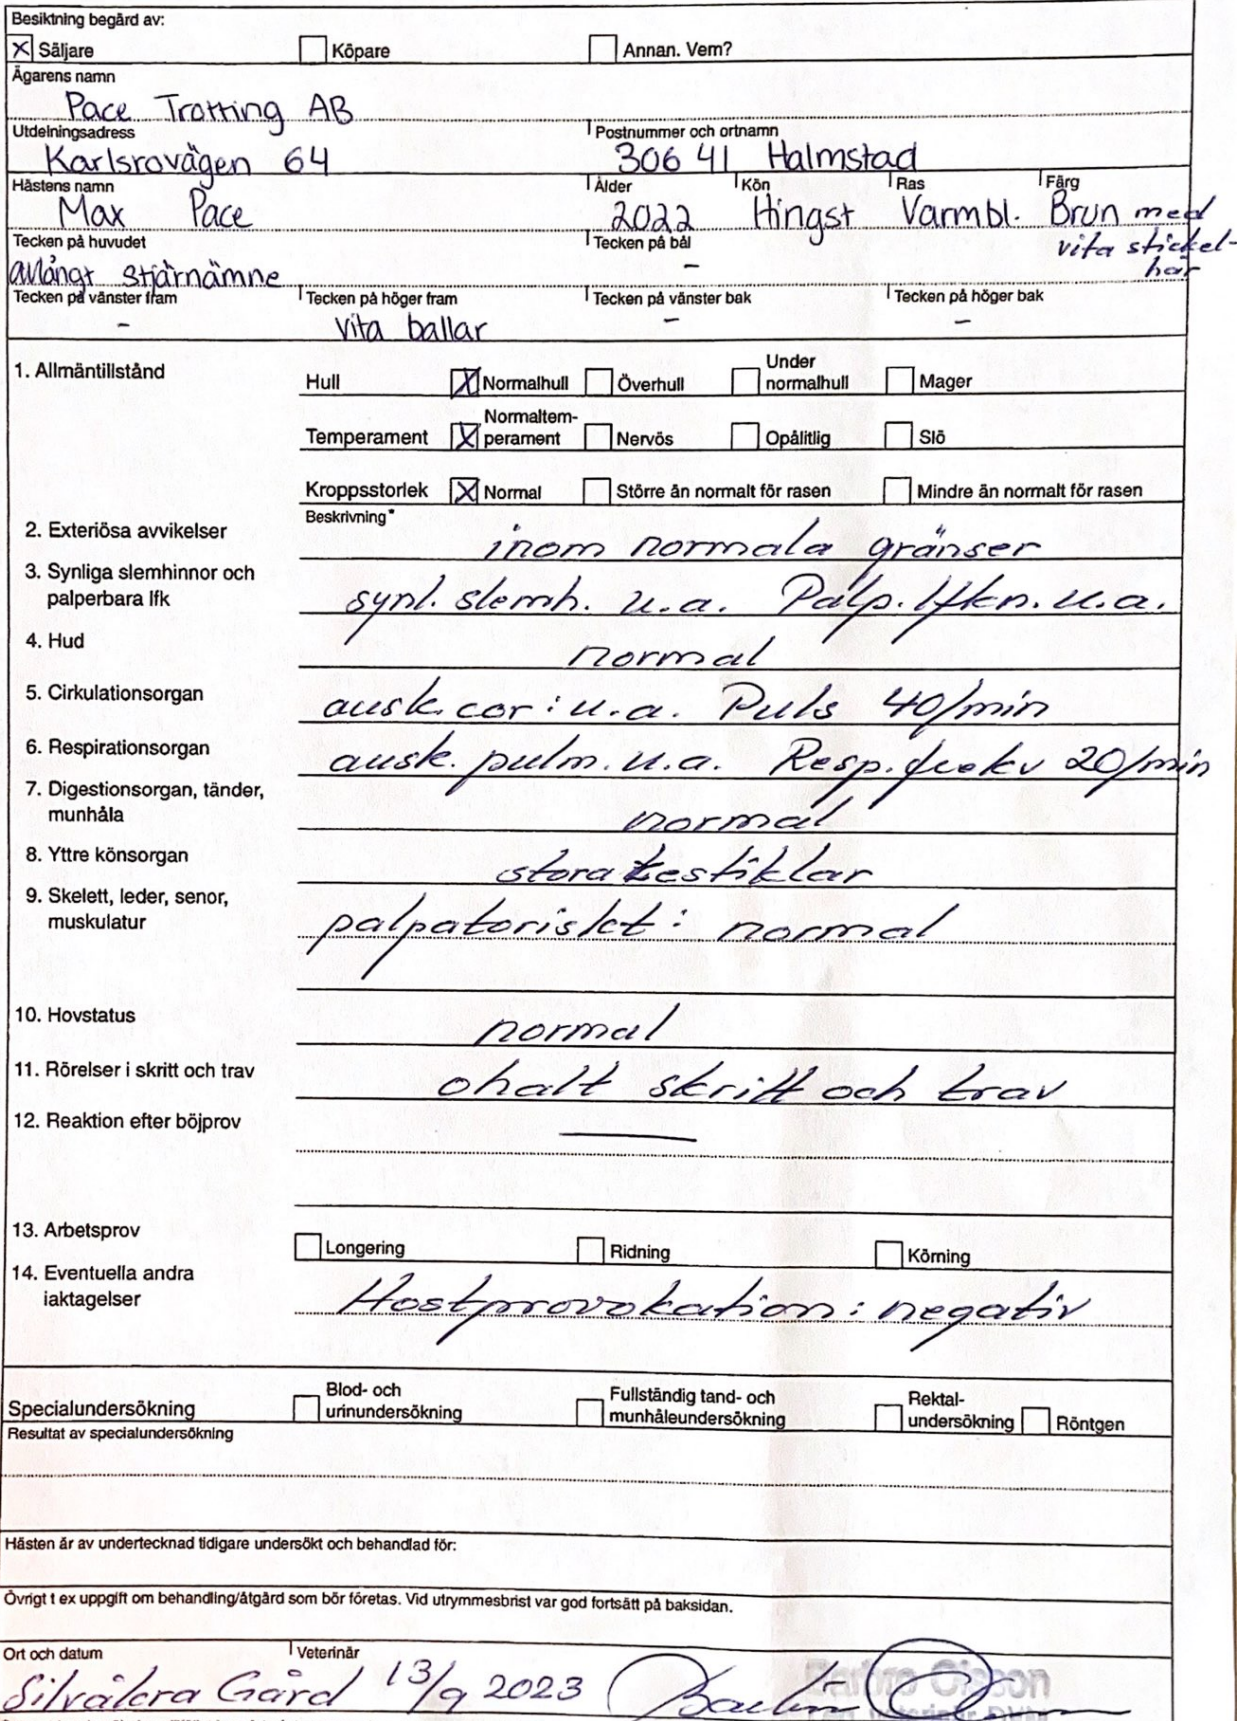 Besiktning begärd av:
X Säljare Köpare Annan. Vem?
Ägarens namn
Pace Trotting AB
Utdelningsadress Postnummer och ortnamn
Karlsrovägen 64 306 41 Halmstad
Hästens namn Ålder Kön Ras Färg
Max Pace 2022 Hingst Varmbl. Brun med
vita stickel-
hår
Tecken på huvudet Tecken på bål
avlångt stjärnämne -
Tecken på vänster fram Tecken på höger fram Tecken på vänster bak Tecken på höger bak
- vita ballar - -
1. Allmäntillstånd
Hull X Normalhull Överhull Under normalhull Mager
Temperament X Normaltem-
perament Nervös Opålitlig Slö
Kroppsstorlek X Normal Större än normalt för rasen Mindre än normalt för rasen
Beskrivning*
2. Exteriösa avvikelser inom normala gränser
3. Synliga slemhinnor och
palperbara lfk synl. slemh. u.a. Palp. lfkn. u.a.
4. Hud normal
5. Cirkulationsorgan ausk. cor: u.a. Puls 40/min
6. Respirationsorgan ausk. pulm. u.a. Resp. frekv 20/min
7. Digestionsorgan, tänder,
munhåla normal
8. Yttre könsorgan stora testiklar
9. Skelett, leder, senor,
muskulatur palpatoriskt: normal
10. Hovstatus normal
11. Rörelser i skritt och trav ohalt skritt och trav
12. Reaktion efter böjprov —
13. Arbetsprov Longering Ridning Körning
14. Eventuella andra
iaktagelser Hostprovokation: negativ
Specialundersökning Blod- och
urinundersökning Fullständig tand- och
munhåleundersökning Rektal-
undersökning Röntgen
Resultat av specialundersökning
Hästen är av undertecknad tidigare undersökt och behandlad för:
Övrigt t ex uppgift om behandling/åtgärd som bör företas. Vid utrymmesbrist var god fortsätt på baksidan.
Ort och datum Veterinär
Gård 13/9 2023
Olsson